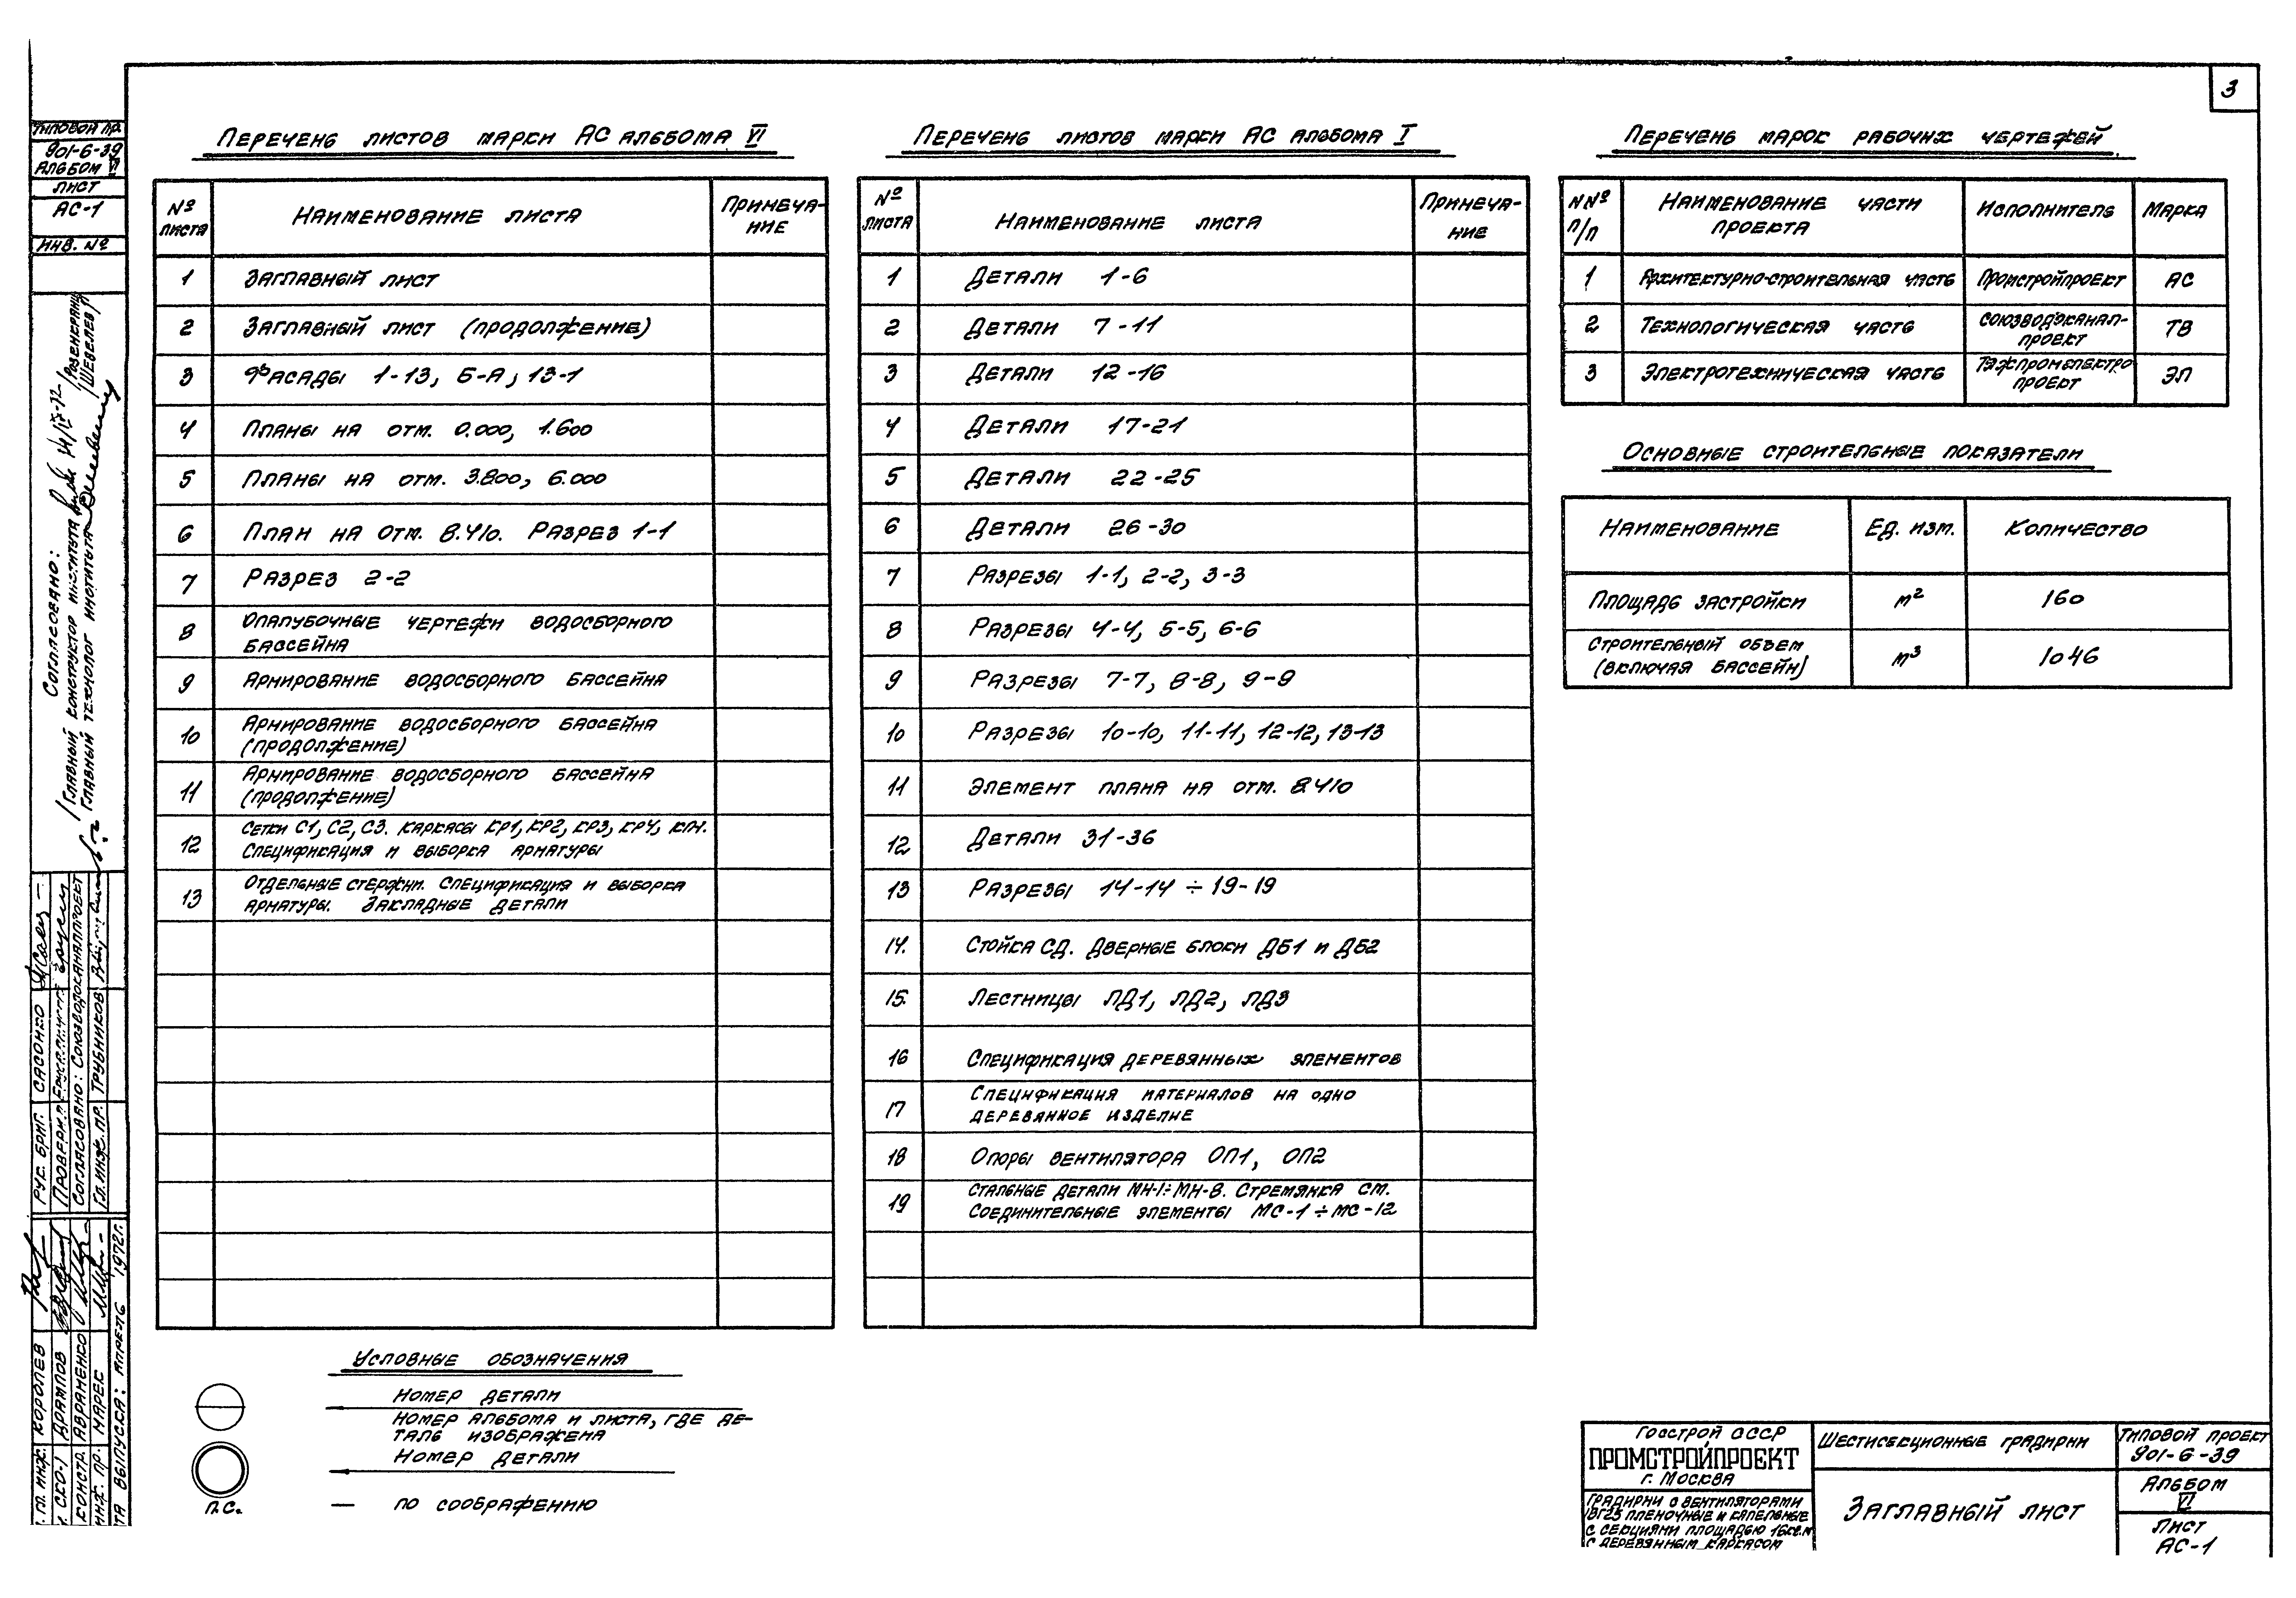 3
Перечень листов марки АС альбома VI
№ листа
Наименование листа
Примеча-
ние
1 Заглавный лист
2 Заглавный лист (продолжение)
3 Фасады 1-13, Б-А, 13-1
4 Планы на отм. 0.000, 1.600
5 Планы на отм. 3.800, 6.000
6 План на отм. 8.410. Разрез 1-1
7 Разрез 2-2
8 Опалубочные чертежи водосборного
бассейна
9 Армирование водосборного бассейна
10 Армирование водосборного бассейна
(продолжение)
11 Армирование водосборного бассейна
(продолжение)
12 Сетки С1, С2, С3. Каркасы КР1, КР2, КР3, КР4, КПН.
Спецификация и выборка арматуры
13 Отдельные стержни. Спецификация и выборка
арматуры. Закладные детали
Перечень листов марки АС альбома I
№ листа
Наименование листа
Примеча-
ние
1 Детали 1-6
2 Детали 7-11
3 Детали 12-16
4 Детали 17-21
5 Детали 22-25
6 Детали 26-30
7 Разрезы 1-1, 2-2, 3-3
8 Разрезы 4-4, 5-5, 6-6
9 Разрезы 7-7, 8-8, 9-9
10 Разрезы 10-10, 11-11, 12-12, 13-13
11 Элемент плана на отм. 8.410
12 Детали 31-36
13 Разрезы 14-14 ÷ 19-19
14. Стойка СД. Дверные блоки ДБ1 и ДБ2
15. Лестницы ЛД1, ЛД2, ЛД3
16 Спецификация деревянных элементов
17 Спецификация материалов на одно
деревянное изделие
18 Опоры вентилятора ОП1, ОП2
19 Стальные детали МН-1÷МН-8. Стремянка СМ.
Соединительные элементы МС-1÷МС-12
Перечень марок рабочих чертежей
№№ п/п
Наименование части
проекта
Исполнитель
Марка
1 Архитектурно-строительная часть Промстройпроект АС
2 Технологическая часть Союзводоканал-
проект ТВ
3 Электротехническая часть Тяжпромэлектро
проект ЭЛ
Основные строительные показатели
Наименование Ед. изм. Количество
Площадь застройки м² 160
Строительный объем
(включая бассейн) м³ 1046
Условные обозначения
Номер детали
Номер альбома и листа, где де-
таль изображена
Номер детали
П.С. — по соображению
Госстрой СССР
ПРОМСТРОЙПРОЕКТ
г. Москва
Градирни с вентиляторами
1ВГ25 пленочные и капельные
с секциями площадью 16кв.м
с деревянным каркасом
Шестисекционные градирни
Заглавный лист
Типовой проект
901-6-39
Альбом
VI
Лист
АС-1
Типовой пр.
901-6-39
Альбом VI
Лист
АС-1
Инв. №
Согласовано:
Главный конструктор института /Розенкранц/
Главный технолог института /Шевелев/
Рук. бриг. Сасонко
Проверил
Согласовано: Союзводоканалпроект
Гл. инж. пр. Трубников
Гл. инж. Королев
СКО-1 Арампов
Констр. Авраменко
Инж. пр. Марек
та выпуска: апрель 1972г.